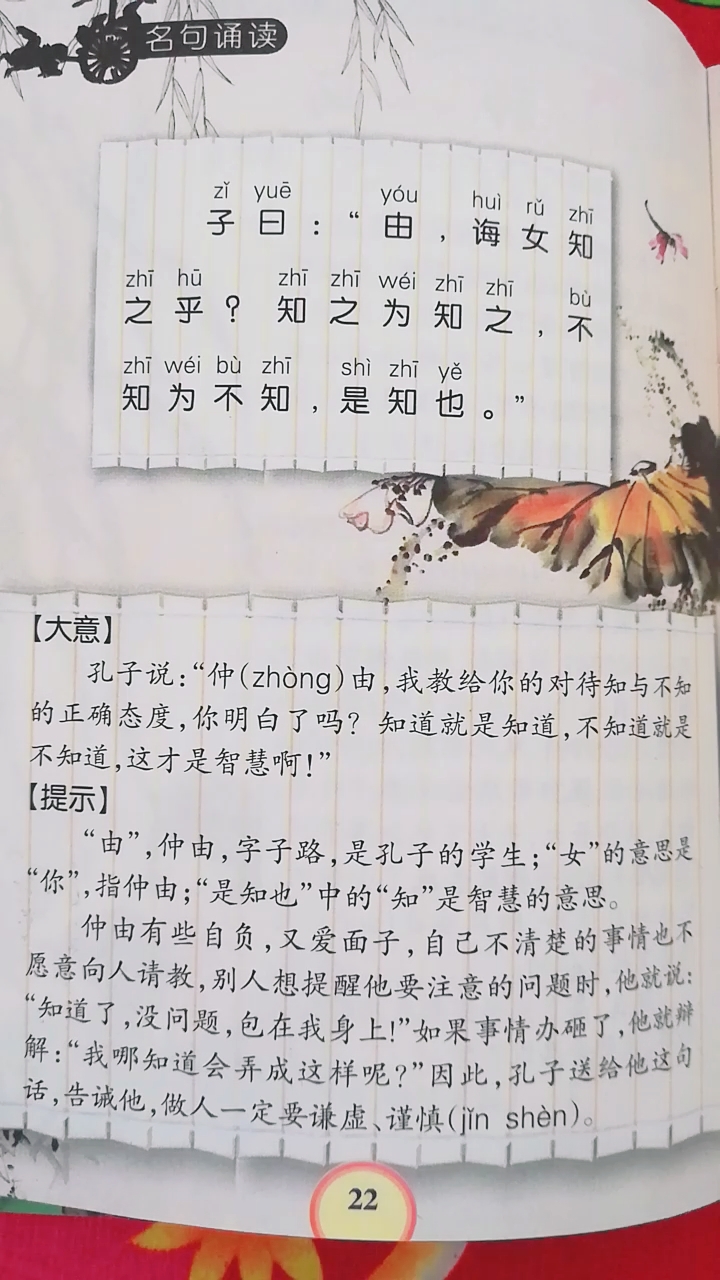 名句诵读
zǐ yuē yóu huì rǔ zhī
子曰：“由，诲女知
zhī hū zhī zhī wéi zhī zhī bù
之乎？知之为知之，不
zhī wéi bù zhī shì zhī yě
知为不知，是知也。”
【大意】
孔子说：“仲(zhòng)由，我教给你的对待知与不知
的正确态度，你明白了吗？知道就是知道，不知道就是
不知道，这才是智慧啊！”
【提示】
“由”，仲由，字子路，是孔子的学生；“女”的意思是
“你”，指仲由；“是知也”中的“知”是智慧的意思。
仲由有些自负，又爱面子，自己不清楚的事情也不
愿意向人请教，别人想提醒他要注意的问题时，他就说：
“知道了，没问题，包在我身上！”如果事情办砸了，他就辩
解：“我哪知道会弄成这样呢？”因此，孔子送给他这句
话，告诫他，做人一定要谦虚、谨慎(jǐn shèn)。
22